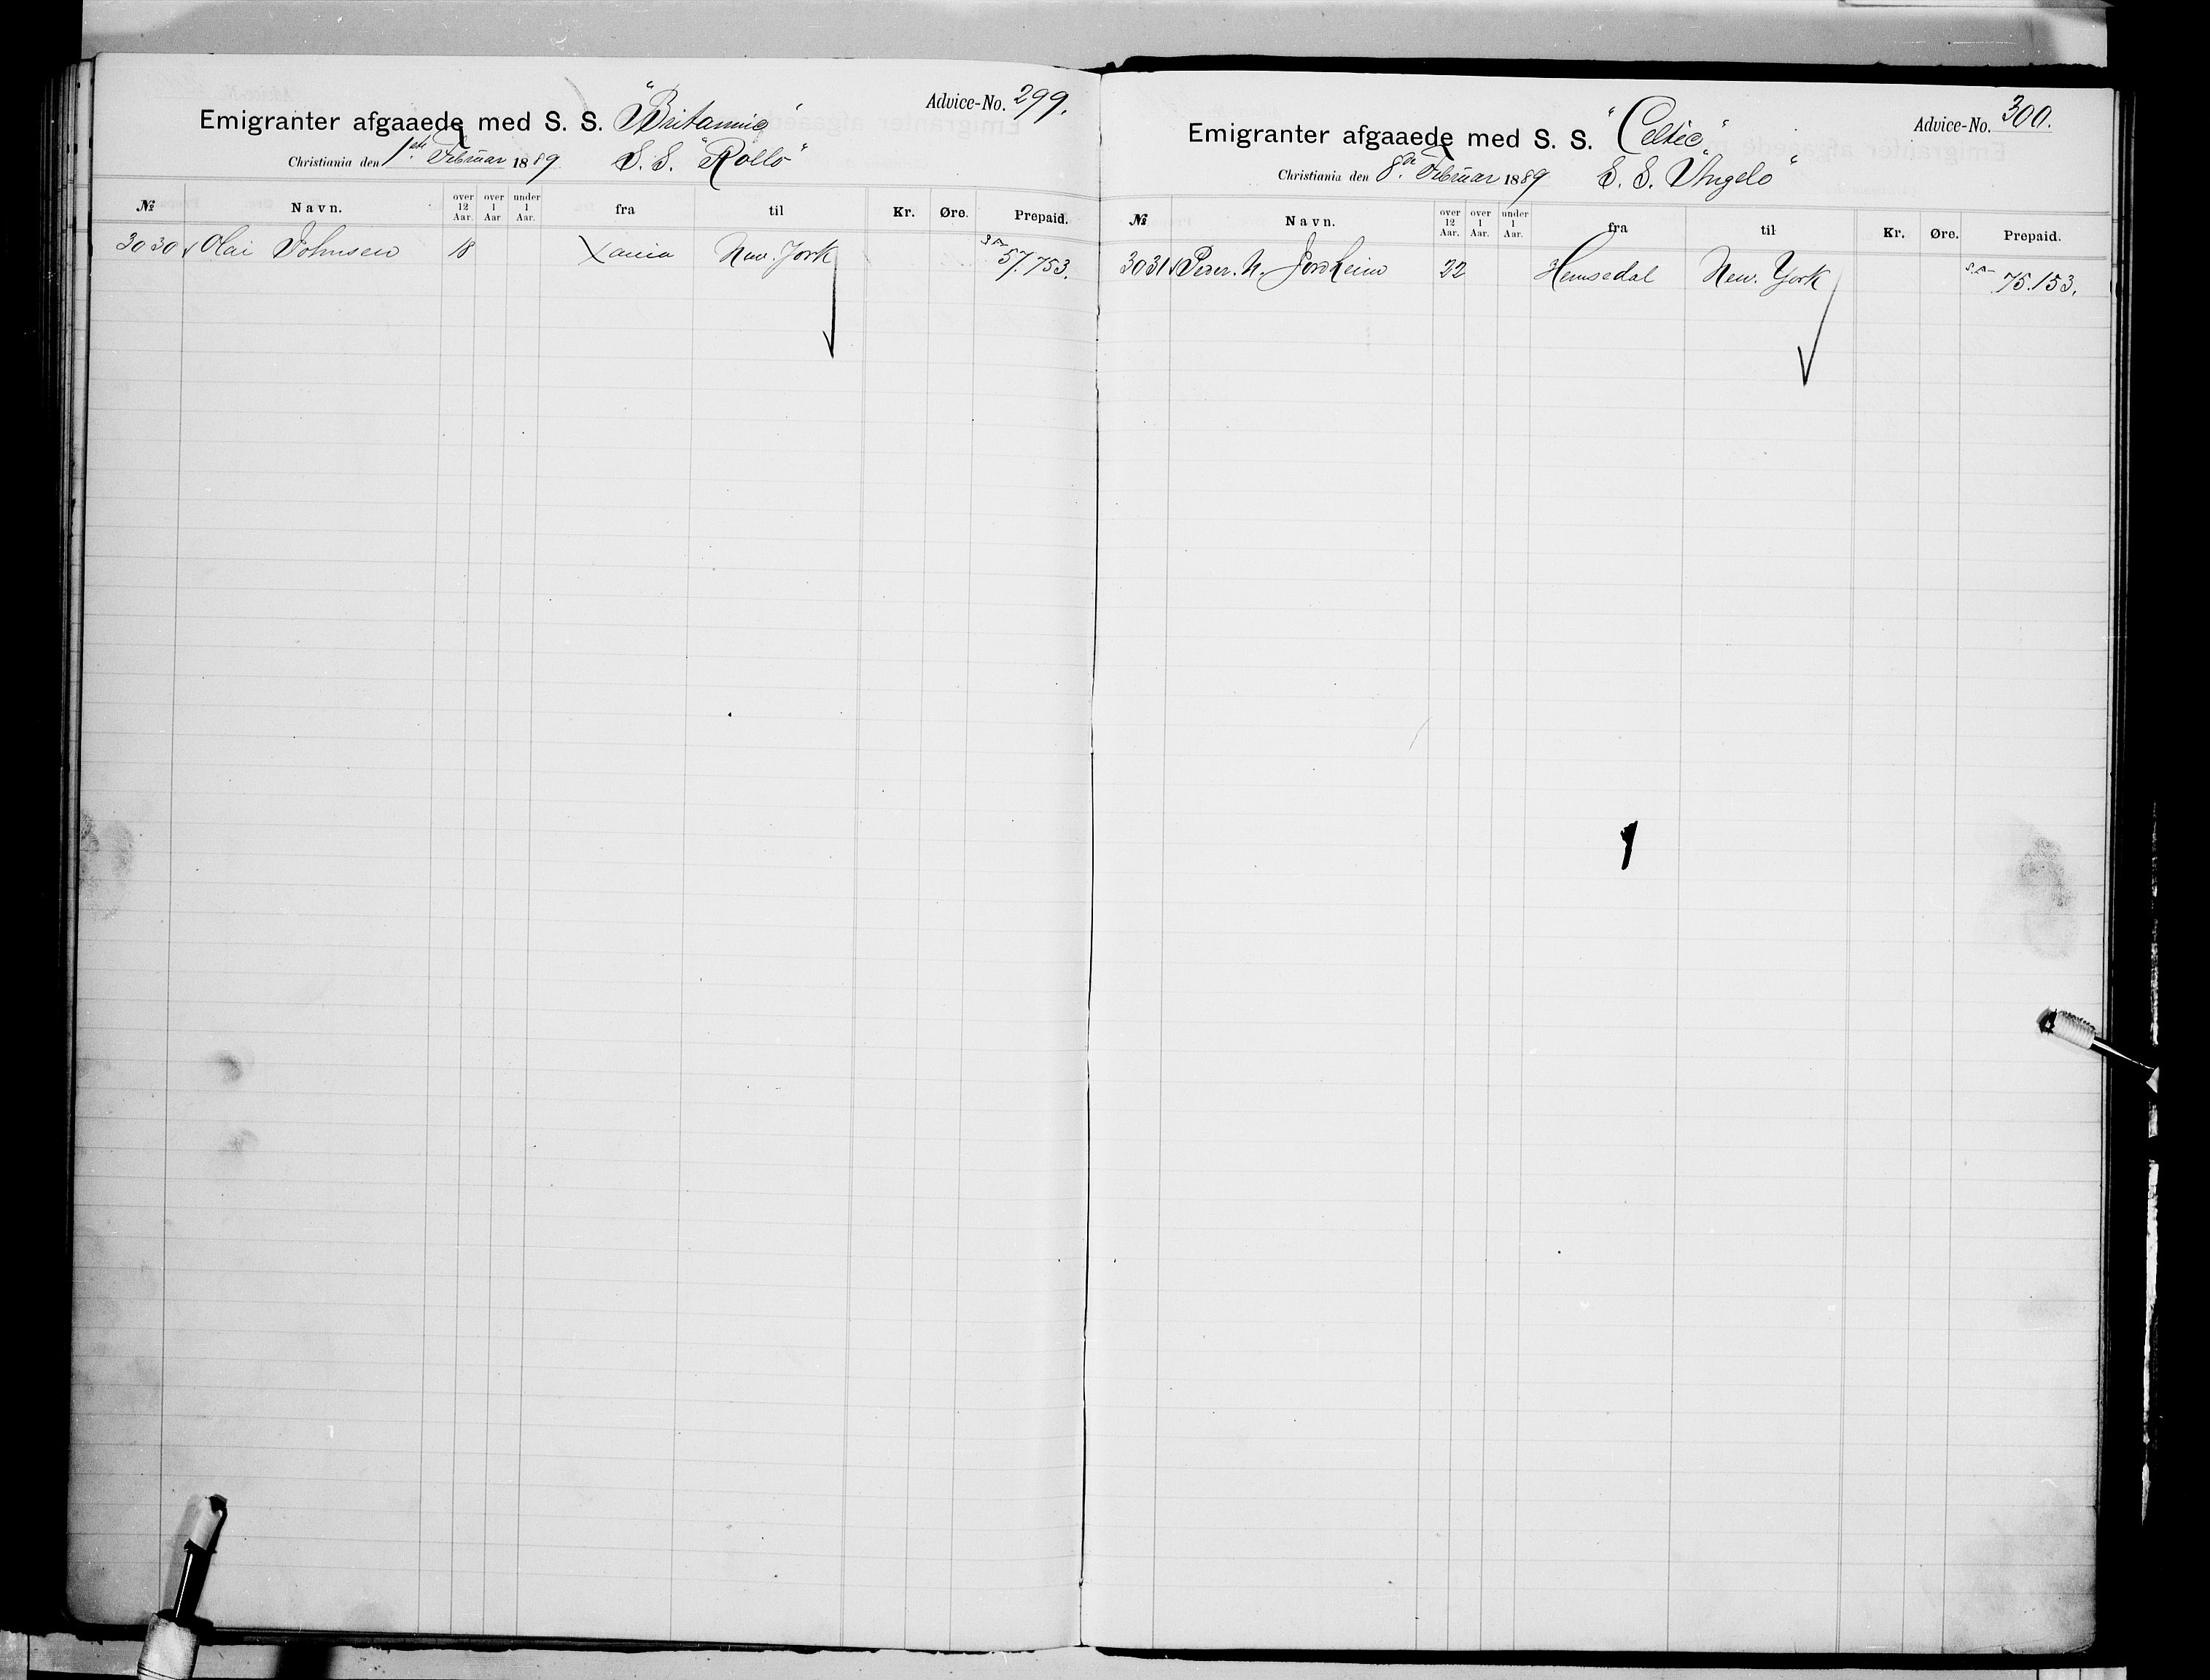 Advice-No. 299.
Emigranter afgaaede med S. S. "Britannic"
Christiania den 1ste Februar 1889 S. S. "Rollo"
№ Navn. over 12 Aar. over 1 Aar under 1 Aar. fra til Kr. Øre. Prepaid.
3030 Olai Johnsen 18 Xania New. York 57.753.
Advice-No. 300.
Emigranter afgaaede med S. S. "Celtic"
Christiania den 8de Februar 1889 S. S. "Angelo"
№ Navn. over 12 Aar. over 1 Aar. under 1 Aar. fra til Kr. Øre. Prepaid.
3031 Peder. N. Jordheim 22 Hemsedal New. York 75.153.